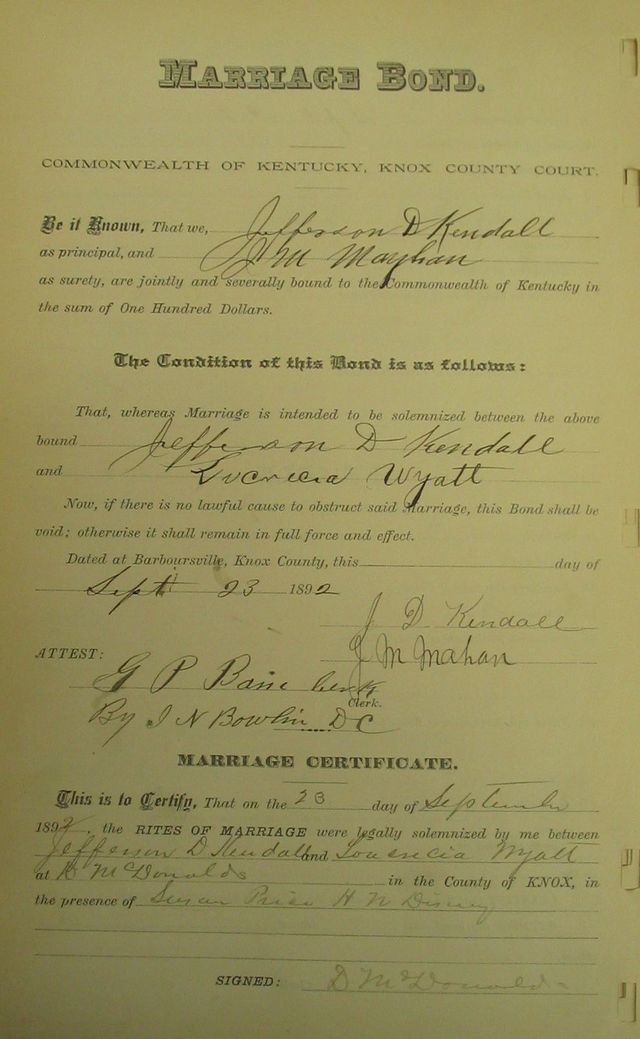 MARRIAGE BOND.
COMMONWEALTH OF KENTUCKY, KNOX COUNTY COURT.
Be it Known, That we, Jefferson D Kendall
as principal, and J M Mayhan
as surety, are jointly and severally bound to the Commonwealth of Kentucky in
the sum of One Hundred Dollars.
The Condition of this Bond is as follows:
That, whereas Marriage is intended to be solemnized between the above
bound Jefferson D Kendall
and Lucrecia Wyatt
Now, if there is no lawful cause to obstruct said Marriage, this Bond shall be
void; otherwise it shall remain in full force and effect.
Dated at Barboursville, Knox County, this day of
Sept 23 1892
J D Kendall
ATTEST: J M Mahan
G P Bain Clerk
Clerk.
By J N Bowlin DC
MARRIAGE CERTIFICATE.
This is to Certify, That on the 23 day of September
1892, the RITES OF MARRIAGE were legally solemnized by me between
Jefferson D Kendall and Wyatt
at D McDonalds in the County of KNOX, in
the presence of Susan Price H N Disney
SIGNED: D McDonald